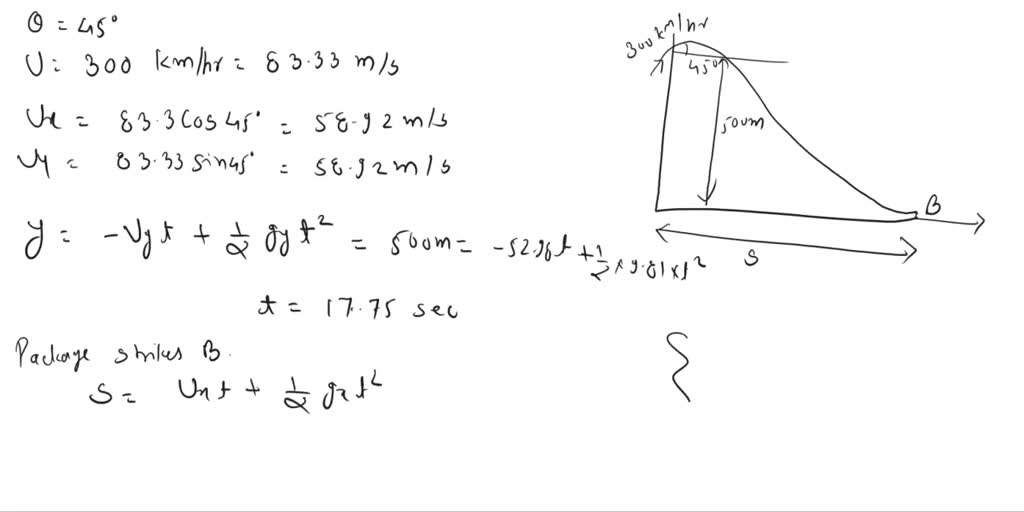 θ = 45°
U = 300 km/hr = 83.33 m/s
Ux = 83.3 cos 45° = 58.92 m/s
Uy = 83.33 sin 45° = 58.92 m/s
y = -Vyt + 1/2 gyt² = 500m = -52.96t + 1/2 × 9.81 × t²
t = 17.75 sec
Package strikes B.
S = Uxt + 1/2 gxt²
300 km/hr
45°
500m
B
S